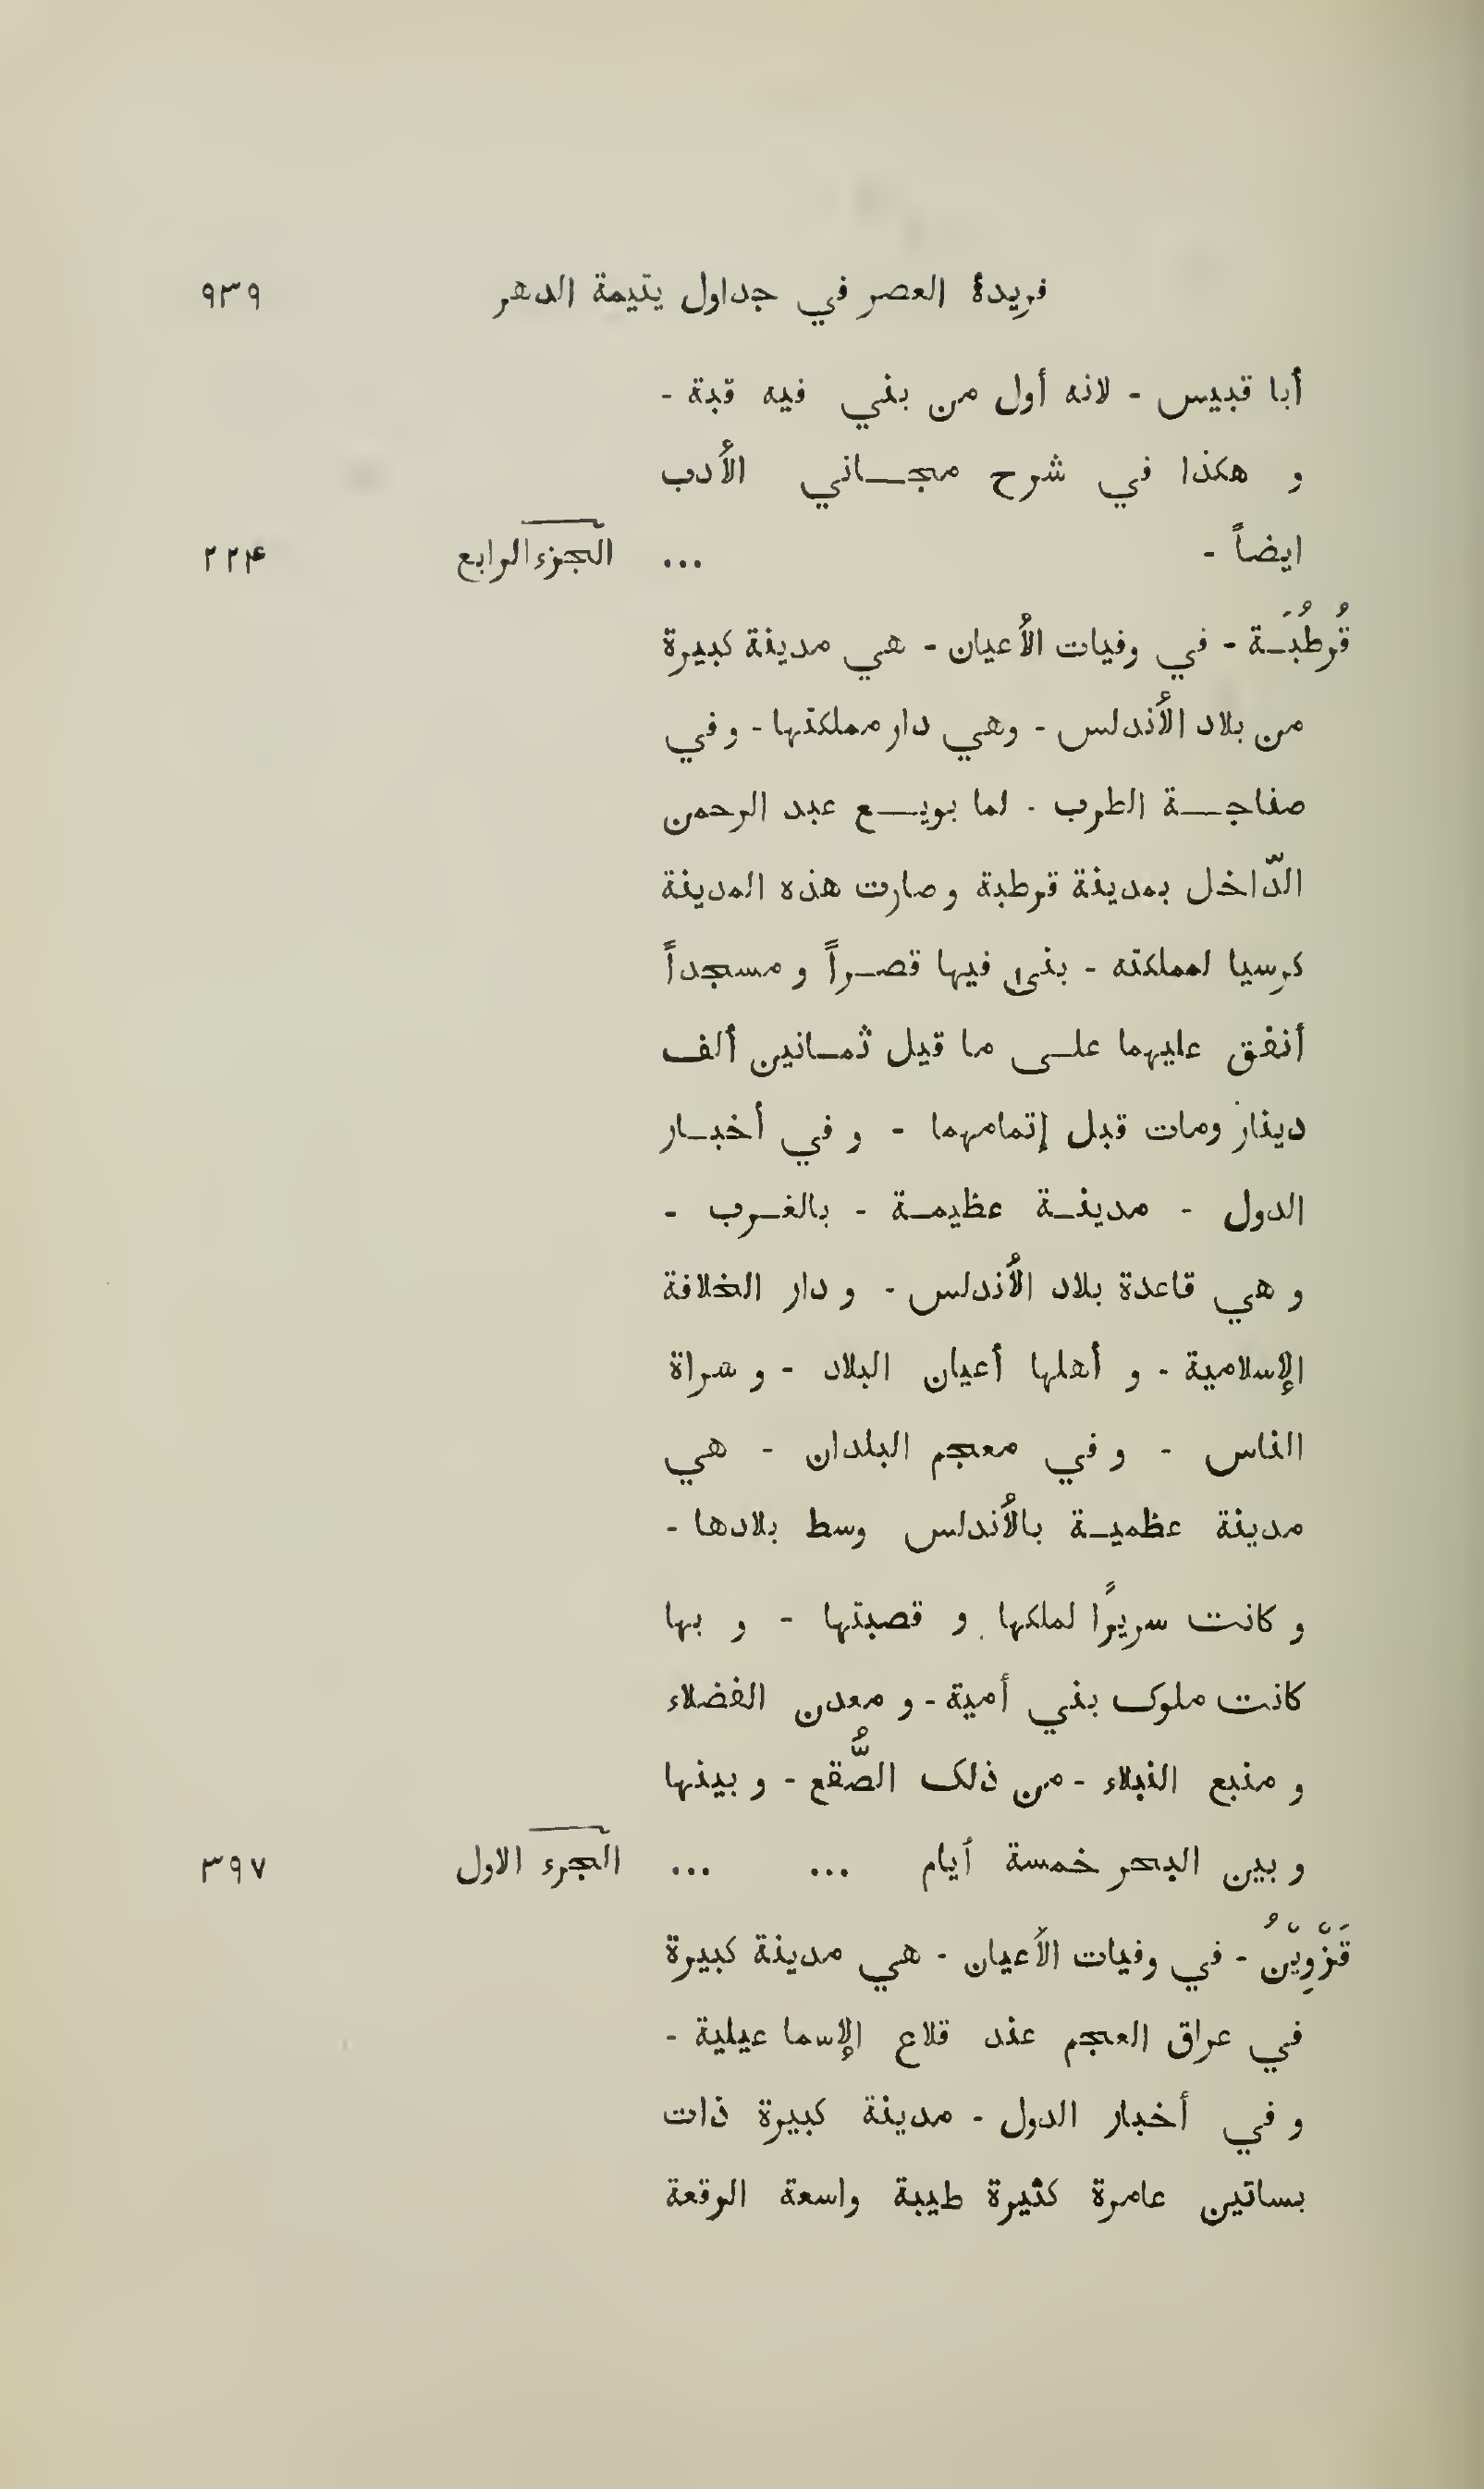 فريدة العصر في جداول يتيمة الدهر ٩٣٩
أبا قبيس - لانه أول من بني فيه قبة -
و هكذا في شرح مجـــاني الأدب
ايضاً - ... الجزء الرابع ٢٢۴
قُرطُبَـة - في وفيات الأعيان - هي مدينة كبيرة
من بلاد الأندلس - وهي دار مملكتها - و في
صفاجــة الطرب - لما بويــع عبد الرحمن
الدّاخل بمدينة قرطبة و صارت هذه المدينة
كرسيا لمملكته - بنى فيها قصـراً و مسجداً
أنفق عليهما علـى ما قيل ثمـانين ألف
دينار ومات قبل إتمامهما - و في أخبـار
الدول - مدينـة عظيمـة - بالغـرب -
و هي قاعدة بلاد الأندلس - و دار الخلافة
الإسلامية - و أهلها أعيان البلاد - و سراة
الناس - و في معجم البلدان - هي
مدينة عظميـة بالأندلس وسط بلادها -
و كانت سريرًا لملكها و قصبتها - و بها
كانت ملوك بني أمية - و معدن الفضلاء
و منبع النبلاء - من ذلك الصُّقع - و بينها
و بين البحر خمسة أيام ... ... الجزء الاول ٣٩٧
قَزْوِيْنُ - في وفيات الأعيان - هي مدينة كبيرة
في عراق العجم عند قلاع الإسما عيلية -
و في أخبار الدول - مدينة كبيرة ذات
بساتين عامرة كثيرة طيبة واسعة الرقعة